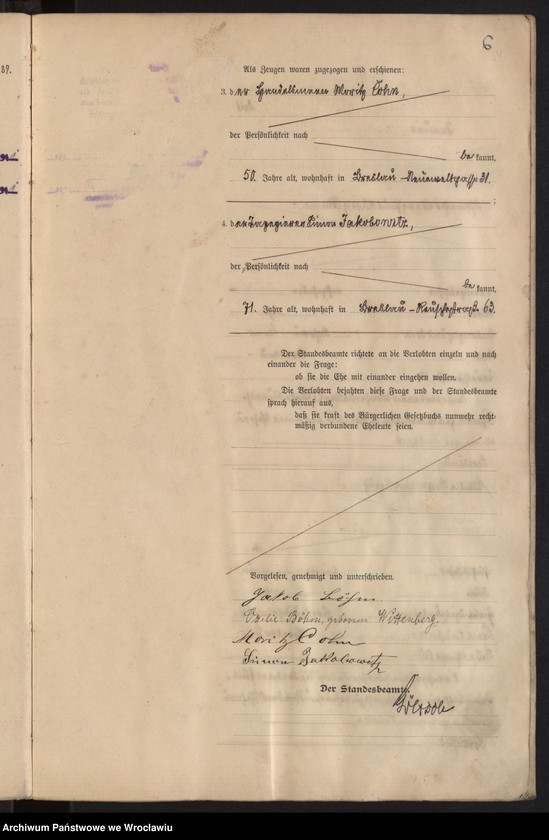 6
39.
Als Zeugen waren zugezogen und erschienen:
3. der Handelsmann Moritz Cohn,
der Persönlichkeit nach
be kannt,
50 Jahre alt, wohnhaft in Breslau – Neueweltgasse 31.
4. der Simon Jakobowitz,
der Persönlichkeit nach
be kannt,
71. Jahre alt, wohnhaft in Breslau – Reuschestraße 63.
Der Standesbeamte richtete an die Verlobten einzeln und nach
einander die Frage:
ob sie die Ehe mit einander eingehen wollen.
Die Verlobten bejahten diese Frage und der Standesbeamte
sprach hierauf aus,
daß sie kraft des Bürgerlichen Gesetzbuchs nunmehr recht-
mäßig verbundene Eheleute seien.
Vorgelesen, genehmigt und unterschrieben.
Jakob Böhm
Böhm, geborene Wittenberg.
Moritz Cohn
Simon Jakobowitz
Der Standesbeamte.
Archiwum Państwowe we Wrocławiu